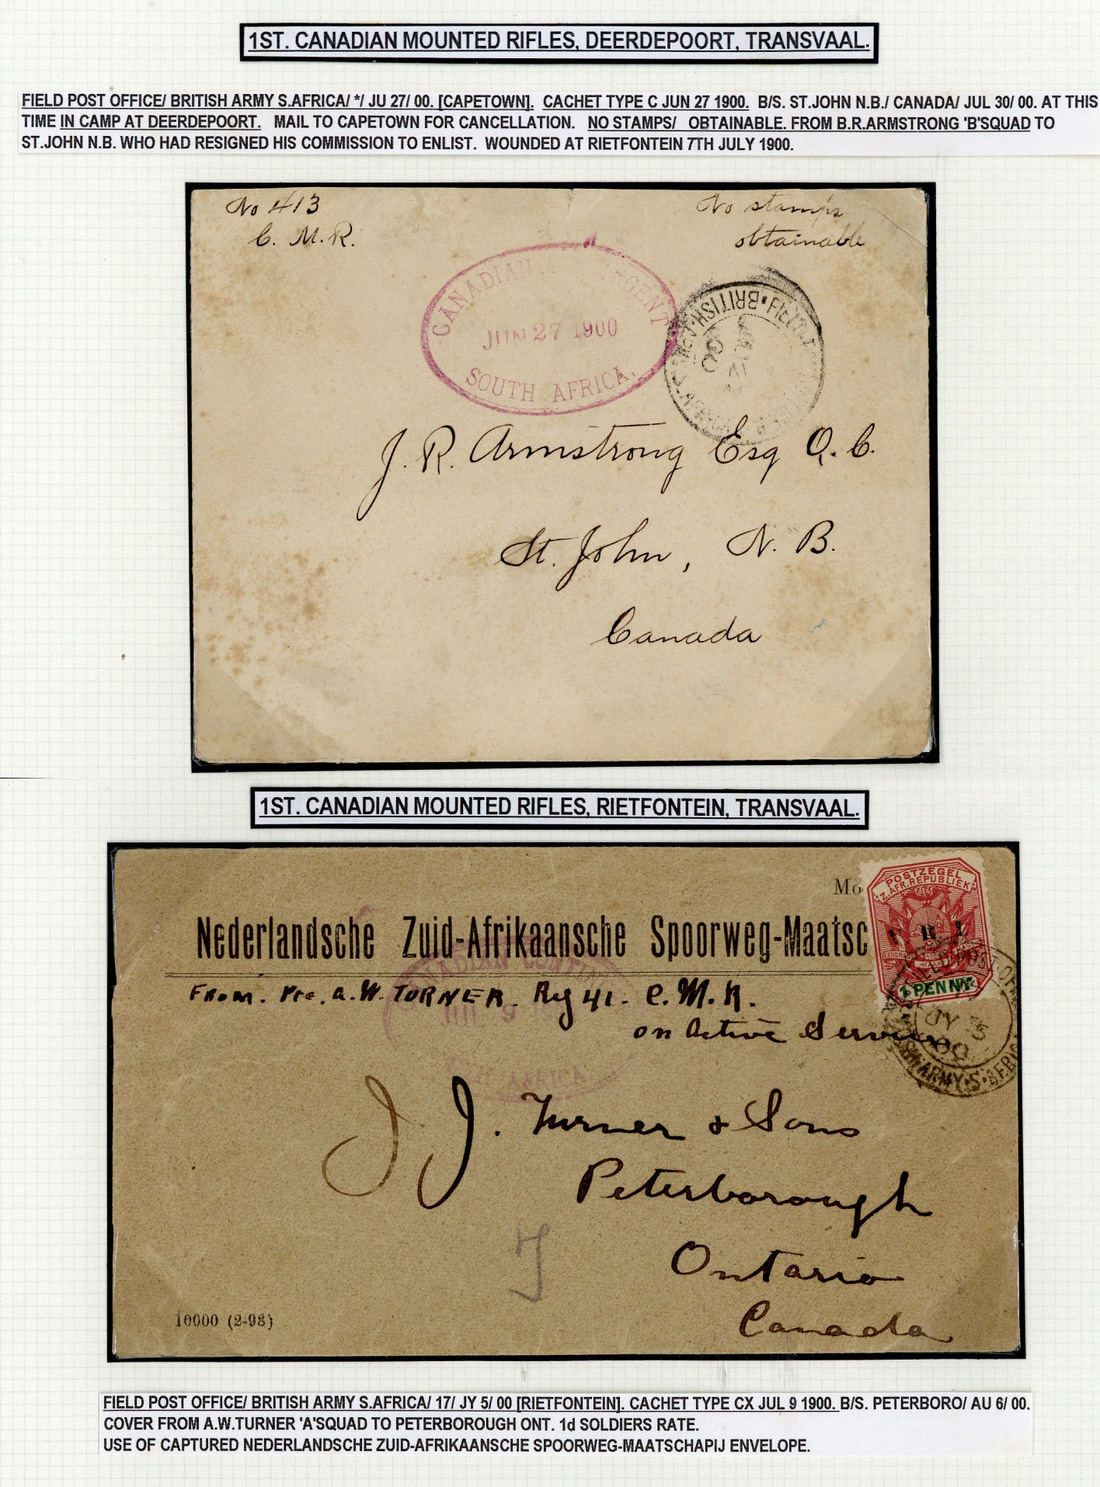 1ST. CANADIAN MOUNTED RIFLES, DEERDEPOORT, TRANSVAAL.
FIELD POST OFFICE/ BRITISH ARMY S.AFRICA/ */ JU 27/ 00. [CAPETOWN]. CACHET TYPE C JUN 27 1900. B/S. ST.JOHN N.B./ CANADA/ JUL 30/ 00. AT THIS
TIME IN CAMP AT DEERDEPOORT. MAIL TO CAPETOWN FOR CANCELLATION. NO STAMPS/ OBTAINABLE. FROM B.R.ARMSTRONG 'B'SQUAD TO
ST.JOHN N.B. WHO HAD RESIGNED HIS COMMISSION TO ENLIST. WOUNDED AT RIETFONTEIN 7TH JULY 1900.
No 413
C. M. R.
No stamps
obtainable
CANADIAN
JUN 27 1900
SOUTH AFRICA.
BRITISH
00
J. R. Armstrong Esq Q. C.
St. John, N. B.
Canada
1ST. CANADIAN MOUNTED RIFLES, RIETFONTEIN, TRANSVAAL.
Mo
POSTZEGEL
Z. AFR. REPUBLIEK
Nederlandsche Zuid-Afrikaansche Spoorweg-Maatsc
PENNY
From. Pte. A. W. TURNER. Reg 41. C. M. R.
on Active Service
CANADIAN CONTIN
9
AFRICA
JY 5
00
ARMY S. AFRIC
J. J. Turner & Sons
Peterborough
Ontario
Canada
10000 (2-98)
FIELD POST OFFICE/ BRITISH ARMY S.AFRICA/ 17/ JY 5/ 00 [RIETFONTEIN]. CACHET TYPE CX JUL 9 1900. B/S. PETERBORO/ AU 6/ 00.
COVER FROM A.W.TURNER 'A'SQUAD TO PETERBOROUGH ONT. 1d SOLDIERS RATE.
USE OF CAPTURED NEDERLANDSCHE ZUID-AFRIKAANSCHE SPOORWEG-MAATSCHAPIJ ENVELOPE.